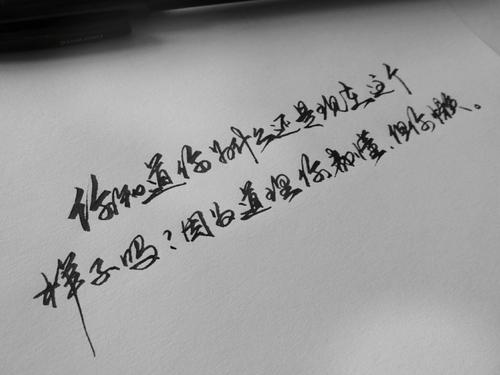 你知道你为什么还是现在这个
样子吗?因为道理你都懂,但你懒。